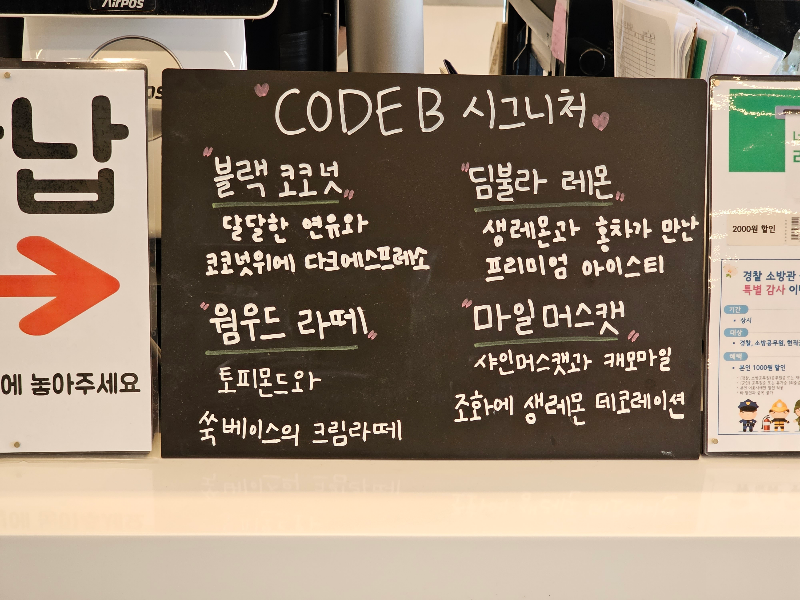 AirPOS
CODE B 시그니처
"블랙 코코넛"
달달한 연유와
코코넛위에 다크에스프레소
"딤불라 레몬"
생레몬과 홍차가 만난
프리미엄 아이스티
"웜우드 라떼"
토피몬드와
쑥베이스의 크림라떼
"마일머스캣"
샤인머스캣과 캐모마일
조화에 생레몬 데코레이션
납
에 놓아주세요
2000원 할인
경찰 소방관
특별 감사 이
기간
• 상시
대상
• 경찰, 소방공무원,
혜택
• 본인 1000원 할인